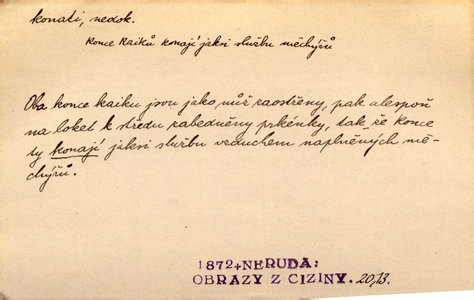 konati, nedok.
konce kaiků konají jaksi službu měchýřů
Oba konce kaiku jsou jako nůž zaostřeny, pak alespoň
na loket k středu zabedněny prkénky, tak že konce
ty konají jaksi službu vzduchem naplněných mě-
chýřů.
1872+NERUDA:
OBRAZY Z CIZINY. 20,13.